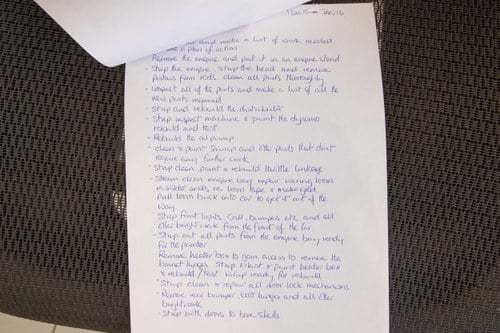 and make a list of work needed
a plan of action
Remove the engine and put it in an engine stand
- Strip the engine. Strip the head and remove
pistons from rods. clean all parts thoroughly
- inspect all of the parts and make a list of all the
new parts required
- Strip and rebuild the distributor
- Strip inspect machine & paint the dynamo
rebuild and test
- Rebuild the oil pump
- clean & paint Sump and other parts that don't
require any further work
- Strip clean, paint & rebuild throttle linkage
- Steam clean engine bay, repair wiring loom
re solder ends, re loom tape &
pull loom back into car to get it out of the
way
Strip front lights, Grill, bumpers etc and all
other bright ware from the front of the car
- Strip out all parts from the engine bay ready
for the painter
Remove heater box to gain access to remove the
bonnet hinges. Strip & paint heater box
& rebuild / test wrap ready for rebuild
Strip clean & repair all door lock mechanisms
- Remove rear bumper, boot hinges and all other
brightwork
- Strip both doors to bare shells